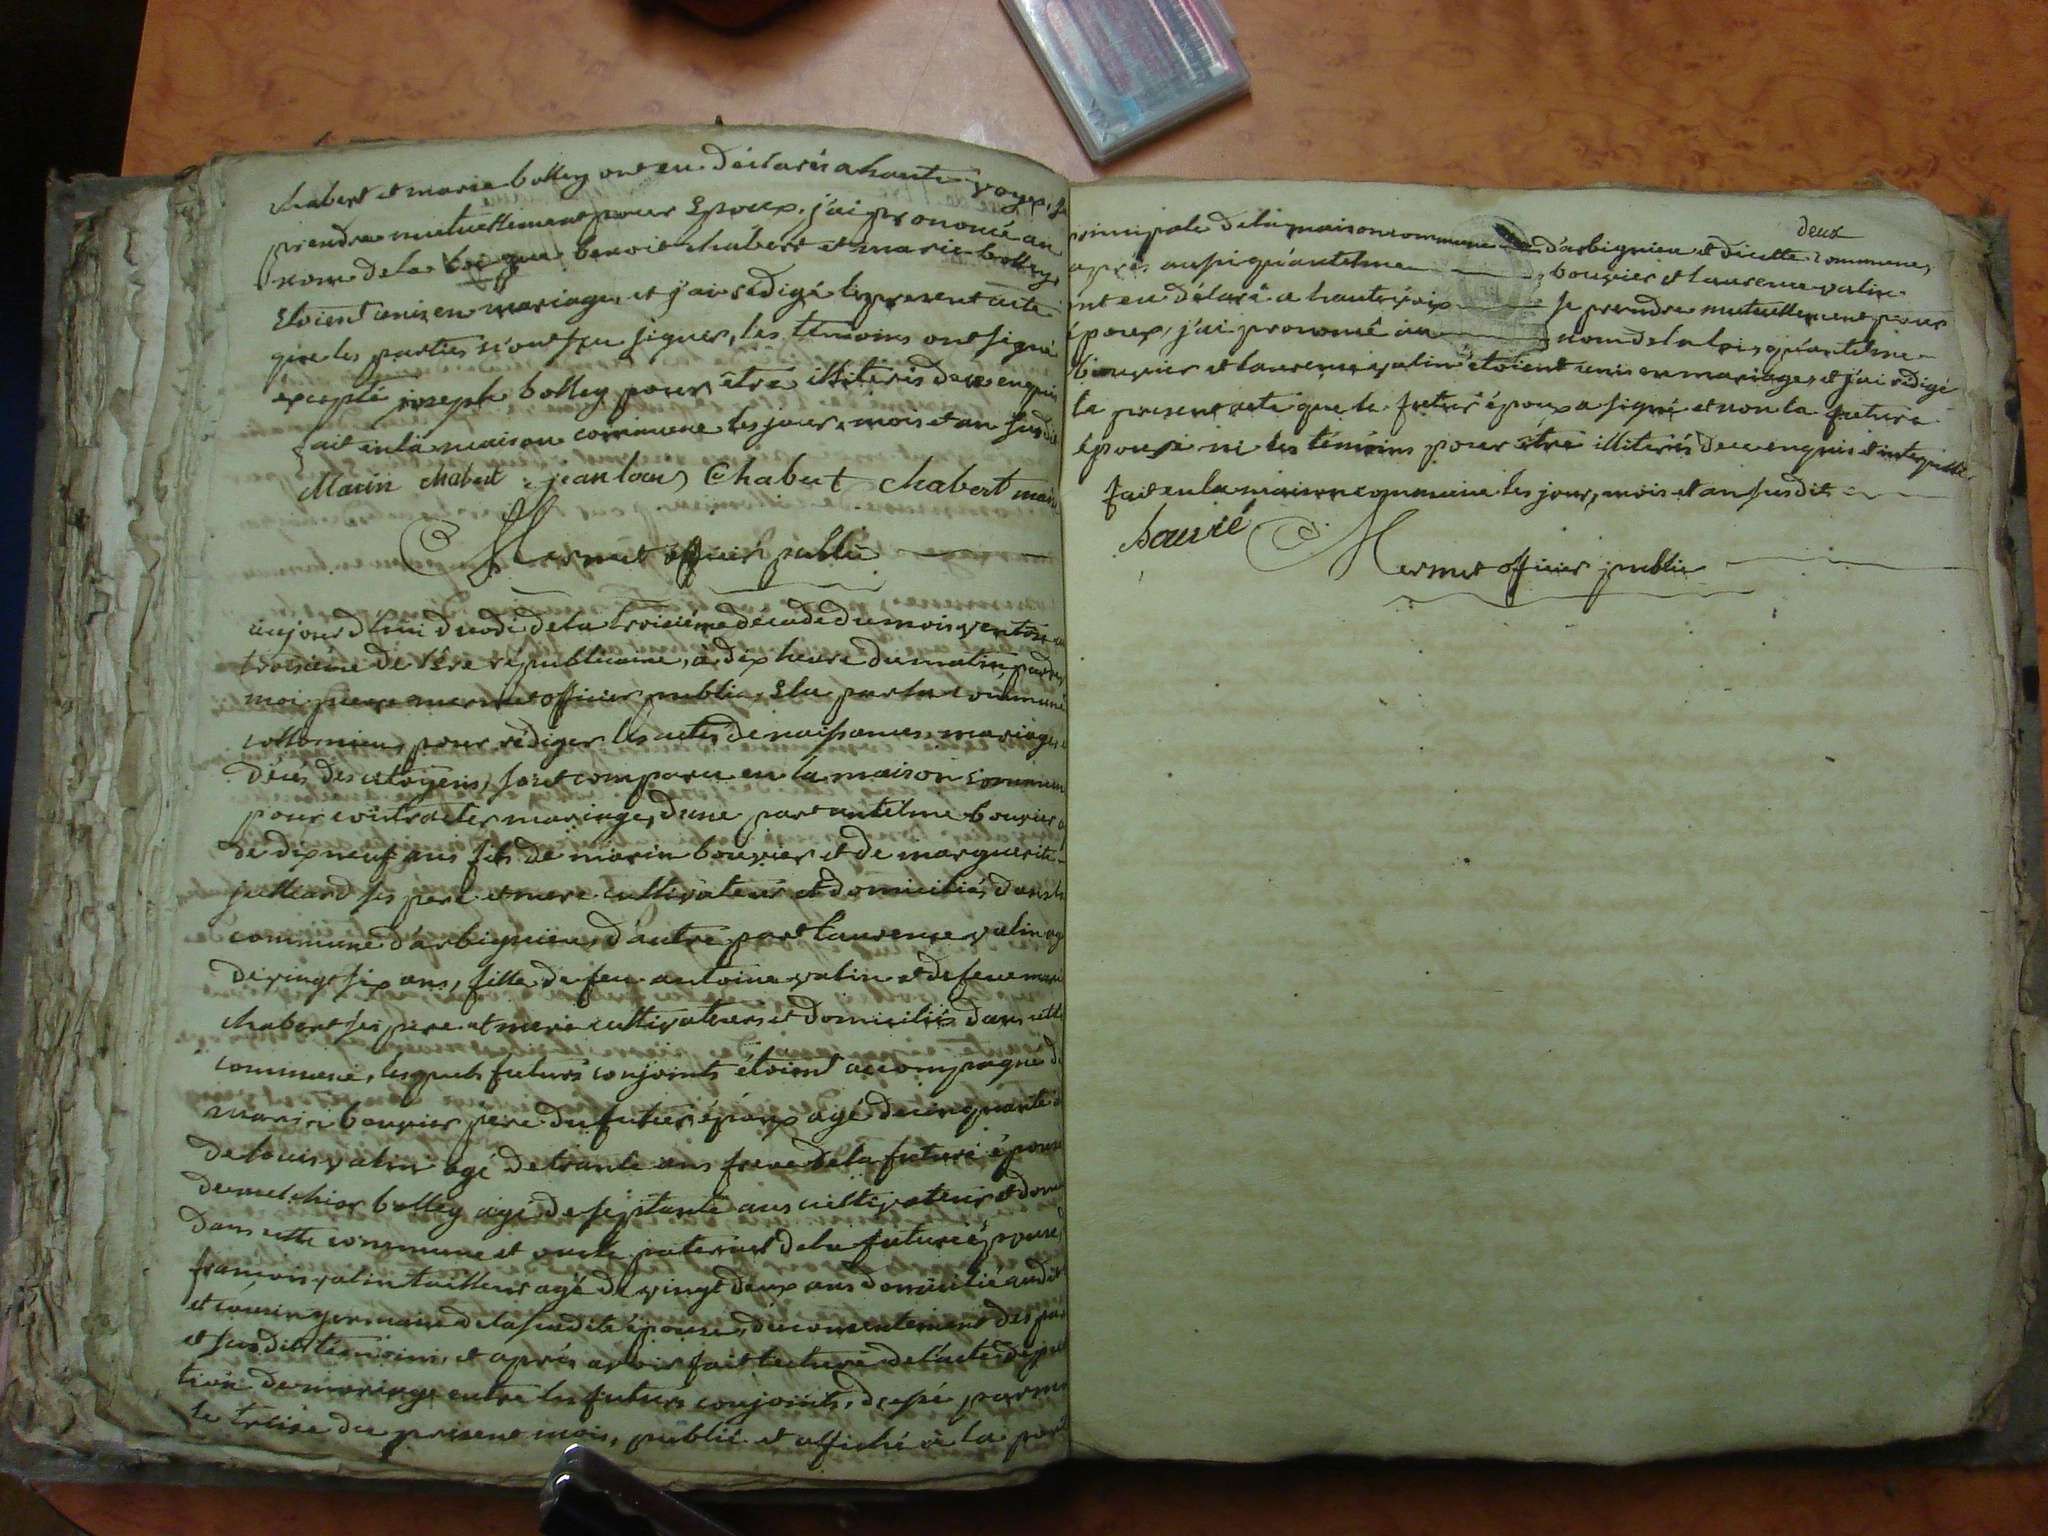 chabert et marie bolley ont eu déclarés a haute voyex, se
prendre mutuellement pour Epoux, j'ai prononcé au
nom de la loi que benoit chabert et marie bolley,
Etoient unis en mariage, et j'ai redigé le present acte
que les parties n'ont sçu signer, les témoins ont signé
excepté joseph bolley pour être illiterés de ce enquis
fait en la maison commune les jour, mois et an susdit
Marin chabert jean louis Chabert chabert maire
Mermet officier public
aujourd'hui duodi de la troisième décade du mois ventôse
troisième de l'ère républicaine, à dix heure du matin, par dev
moi pierre mermet officier public, Elu par la commune
collomieu, pour rédiger les actes de naissances, mariages,
décès des citoyens, sont comparu en la maison commune
pour contracter mariage, d'une part antelme bouvier a
de dix neuf ans fils de marin bouvier et de marguerite
juilliard ses pere et mere cultivateurs et domiciliés dans la
commune d'arbignieu, d'autre part laurence valin ag
de vingt six ans, fille de feu antoine valin et de feue marie
chabert ses pere et mere cultivateurs et domiciliés dans cette
commune, lesquels futurs conjoints étoient accompagné de
marin bouvier pere du futur époux agé de cinquante a
de louis valin agé de trante ans frere de la future épouse
de melchior bolley agé de septante ans cultivateur et domi
dans cette commune et oncle paternel de la future épouse, d
françois valin tailleur agé de vingt deux ans domicilié audit
et cousin germain de la sudite épouse, du consentement des par
et susdits témoins, et après avoir fait lecture de l'acte de pu
tion de mariage entre les futurs conjoints, dressé par moi
le treise du present mois, publié et affiché à la porte
deux
principale de la maison commune d'arbignieu et dicette commune,
après aussi qu'antelme bouvier et laurence valin
ont eu déclaré a haute voix se prendre mutuellement pour
époux, j'ai prononcé au nom de la loi, qu'antelme
bouvier et laurence valin étoient unis en mariage, et j'ai rédigé
le present acte que le futur époux a signé et non la future
épouse ni les témoins pour être illiterés de ce enquis et interpellés
fait en la maison commune les jour, mois et an susdit
bouvié Mermet officier public